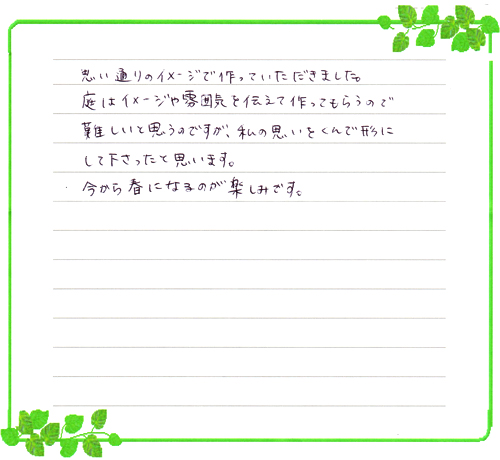 思い通りのイメージで作っていただきました。
庭はイメージや雰囲気を伝えて作ってもらうので
難しいと思うのですが、私の思いをくんで形に
して下さったと思います。
今から春になるのが楽しみです。